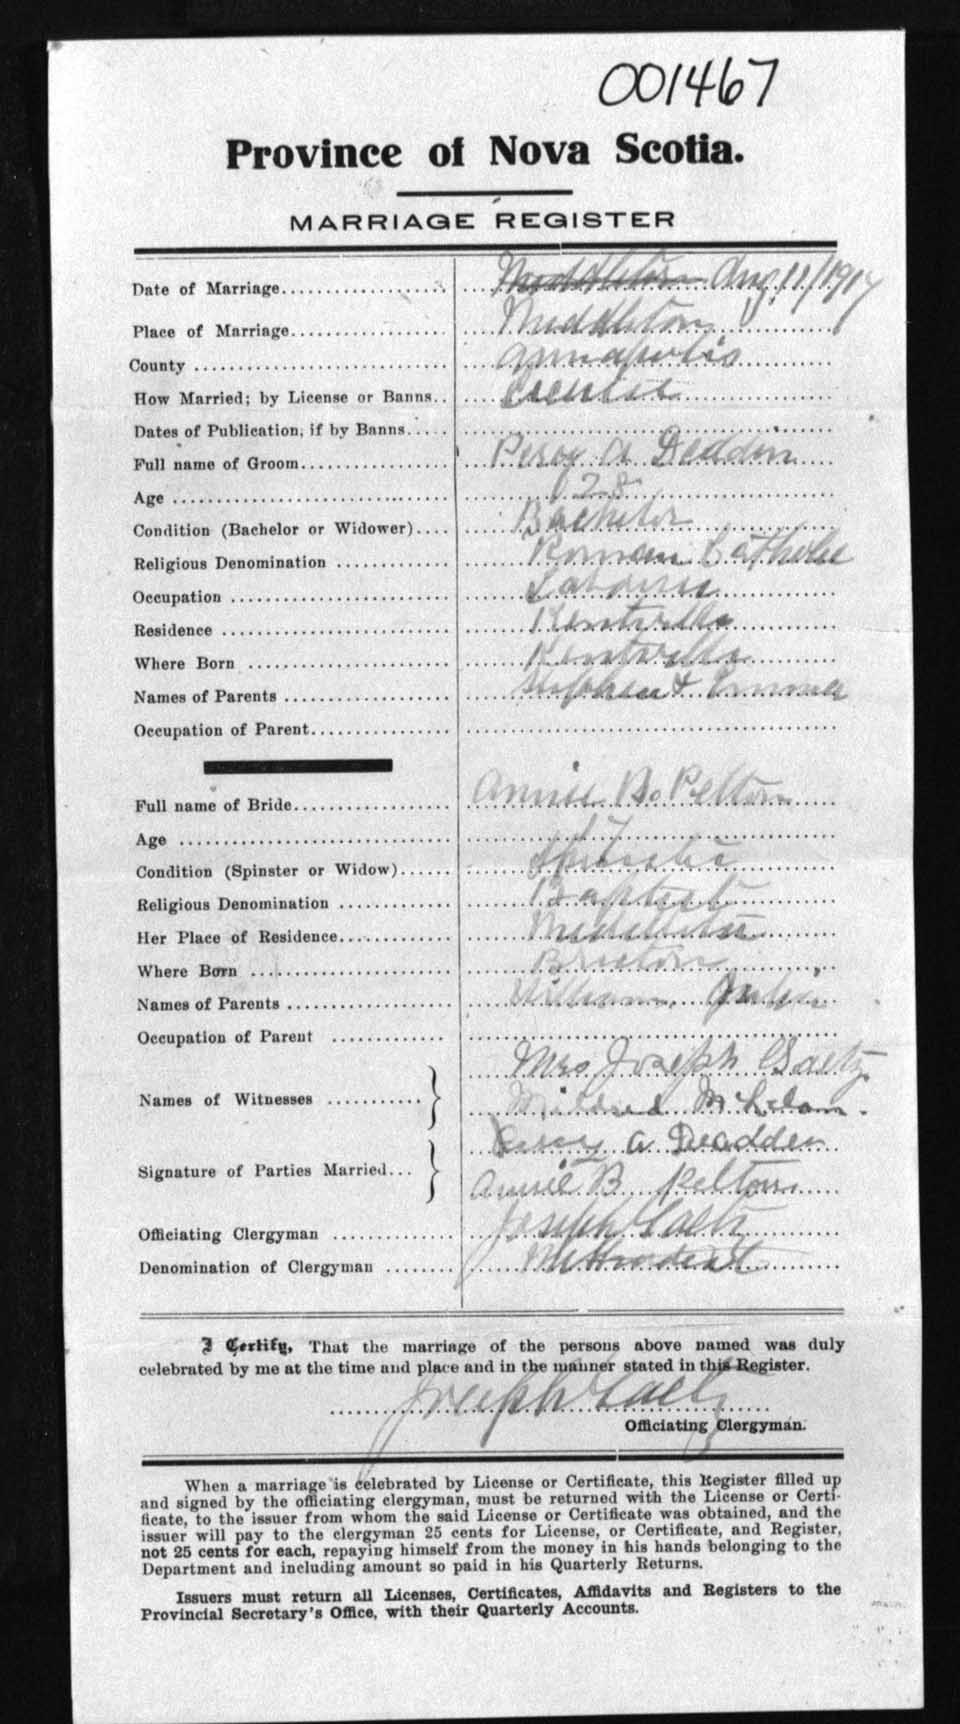 001467
Province of Nova Scotia.
MARRIAGE REGISTER
Date of Marriage Middleton Aug. 11/1917
Place of Marriage Middleton
County Annapolis
How Married; by License or Banns License
Dates of Publication, if by Banns
Full name of Groom Percy A Deadder
Age 28
Condition (Bachelor or Widower) Bachelor
Religious Denomination Roman Catholic
Occupation Labourer
Residence Kentville
Where Born Kentville
Names of Parents Stephen & Emma
Occupation of Parent
Full name of Bride Annie B. Pelton
Age
Condition (Spinster or Widow) Spinster
Religious Denomination Baptist
Her Place of Residence Middleton
Where Born
Names of Parents William Julia
Occupation of Parent
Names of Witnesses Mrs Joseph Gaetz
Mildred
Signature of Parties Married Percy A Deadder
Annie B Pelton
Officiating Clergyman Joseph Gaetz
Denomination of Clergyman Methodist
I Certify, That the marriage of the persons above named was duly
celebrated by me at the time and place and in the manner stated in this Register.
Joseph Gaetz
Officiating Clergyman.
When a marriage is celebrated by License or Certificate, this Register filled up
and signed by the officiating clergyman, must be returned with the License or Certi-
ficate, to the issuer from whom the said License or Certificate was obtained, and the
issuer will pay to the clergyman 25 cents for License, or Certificate, and Register,
not 25 cents for each, repaying himself from the money in his hands belonging to the
Department and including amount so paid in his Quarterly Returns.
Issuers must return all Licenses, Certificates, Affidavits and Registers to the
Provincial Secretary's Office, with their Quarterly Accounts.